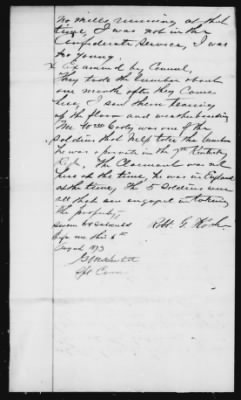 no mills running at that
time, I was not in the
Confederate Service, I was
too young.
X Examined by Counsel,
They took the lumber about
one month after they came
here, I saw them tearing
up the floor and weatherboarding
Mr Wm Cooly was one of the
soldiers that help take the lumber
he was a private in the 7th Kentucky
The Claimant was not
here at the time, he was in England
at the time, The 5 soldiers were
all that are engaged in taking
the property,
Sworn to & subscribed Robt G.
before me this 6th
1873
Spl Com